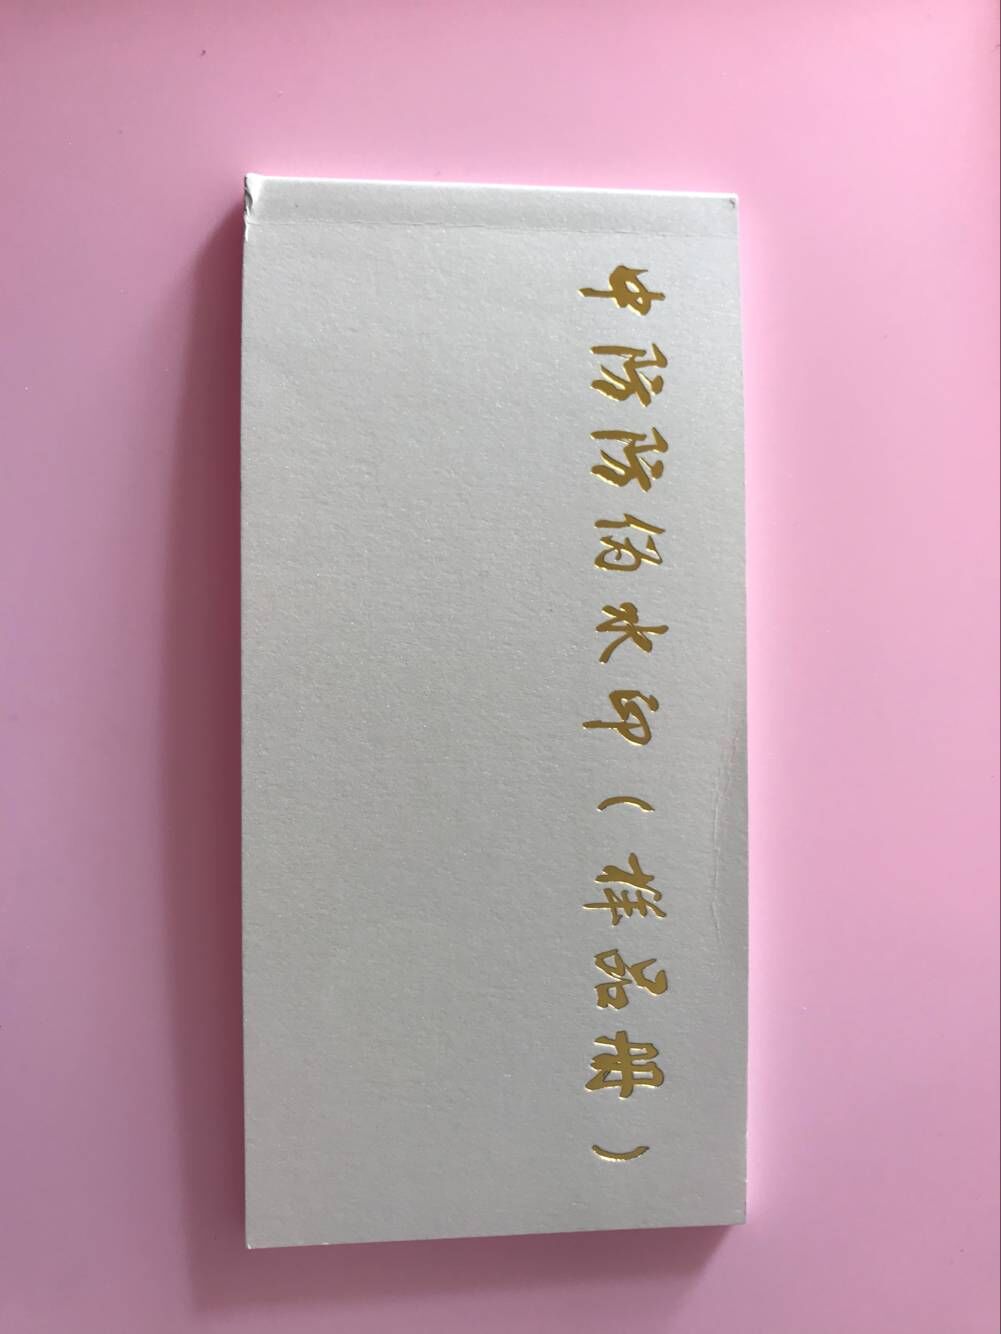 中防防伪水印(样品册)